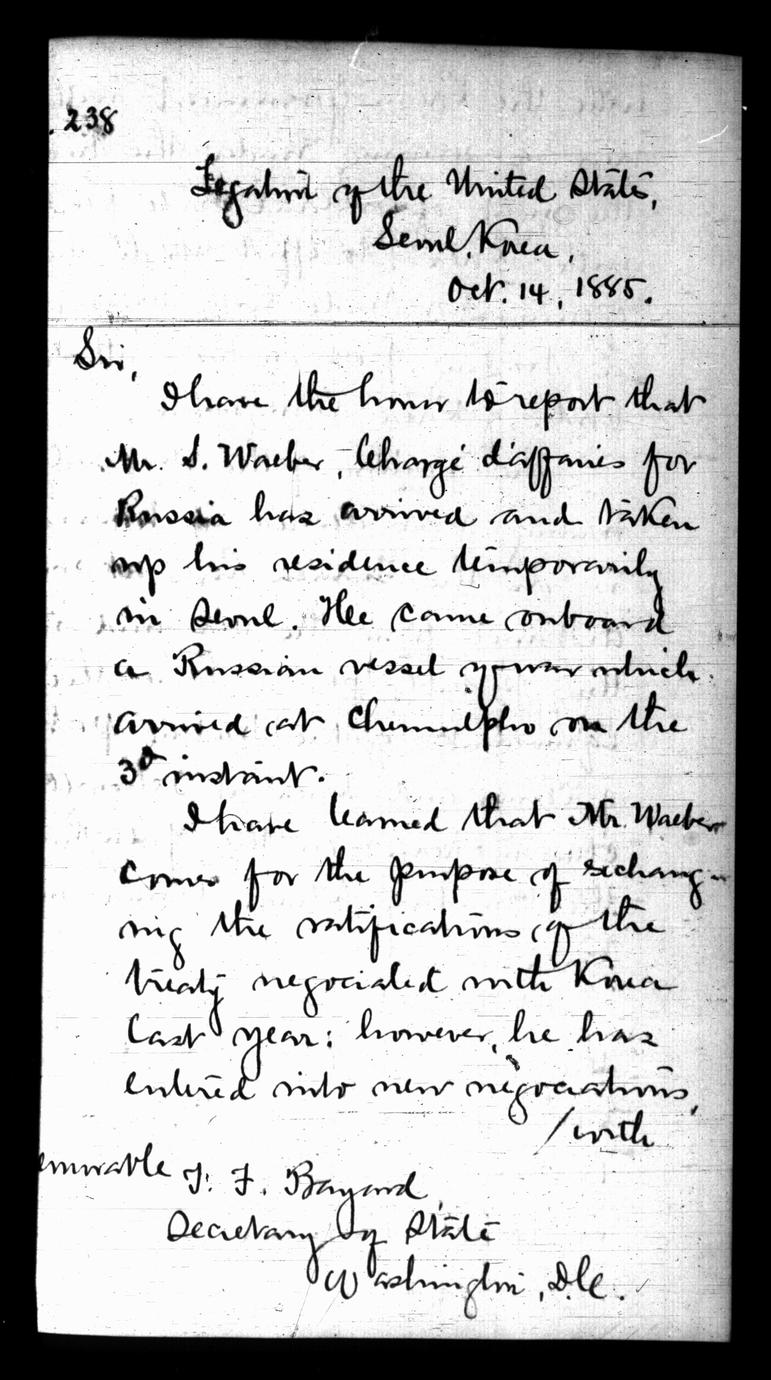 . 238
Legation of the United States,
Seoul, Korea,
Oct. 14, 1885.
Sir,
I have the honor to report that
Mr. S. Waeber, Chargé d'affaries for
Russia has arrived and taken
up his residence temporarily
in Seoul. He came onboard
a Russian vessel of war which
arrived at Chemulpho on the
3d instant.
I have learned that Mr. Waeber
comes for the purpose of exchang-
ing the ratifications of the
treaty negociated with Korea
last year: however, he has
entered into new negociations,
/with
T. F. Bayard,
Secretary of State
Washington, D.C.